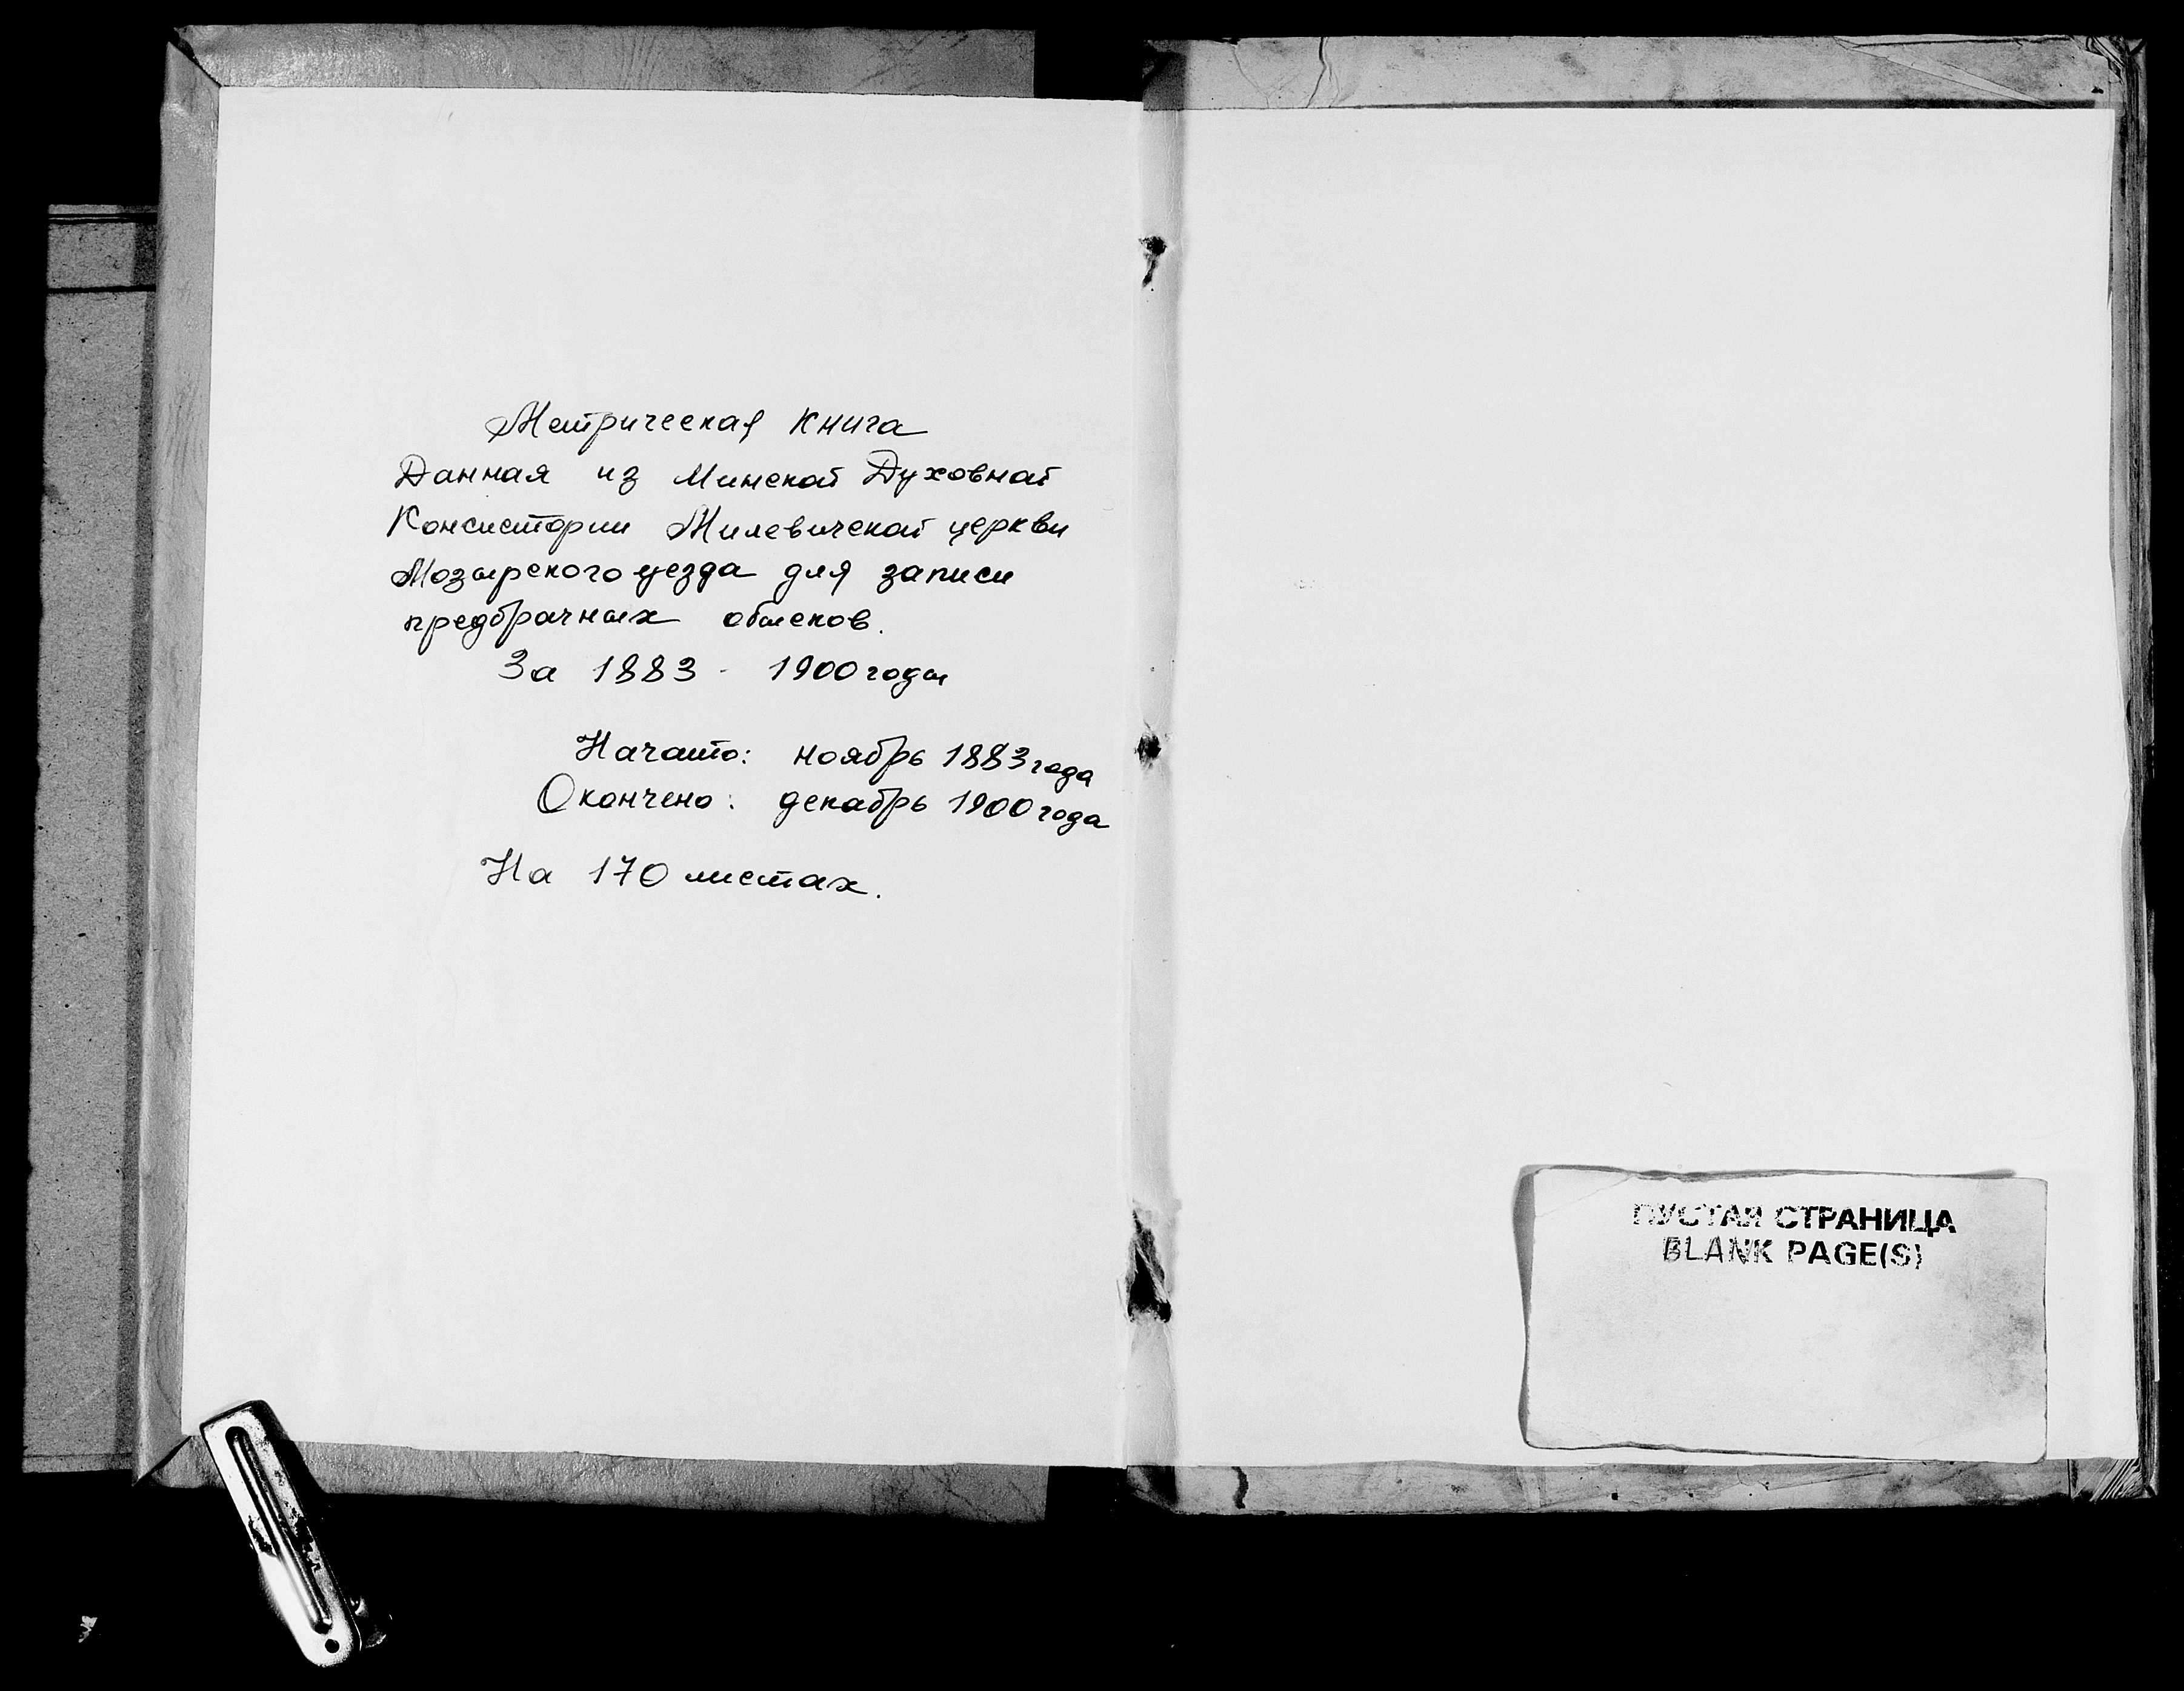 Метрическая Книга
Данная из Минской Духовной
Консистории Милевичской церкви
Мозырского уезда для записи
предбрачных обысков.
За 1883 - 1900 годы
Начато: ноябрь 1883 года
Окончено: декабрь 1900 года
На 170 листах.
ПУСТАЯ СТРАНИЦА
BLANK PAGE(S)